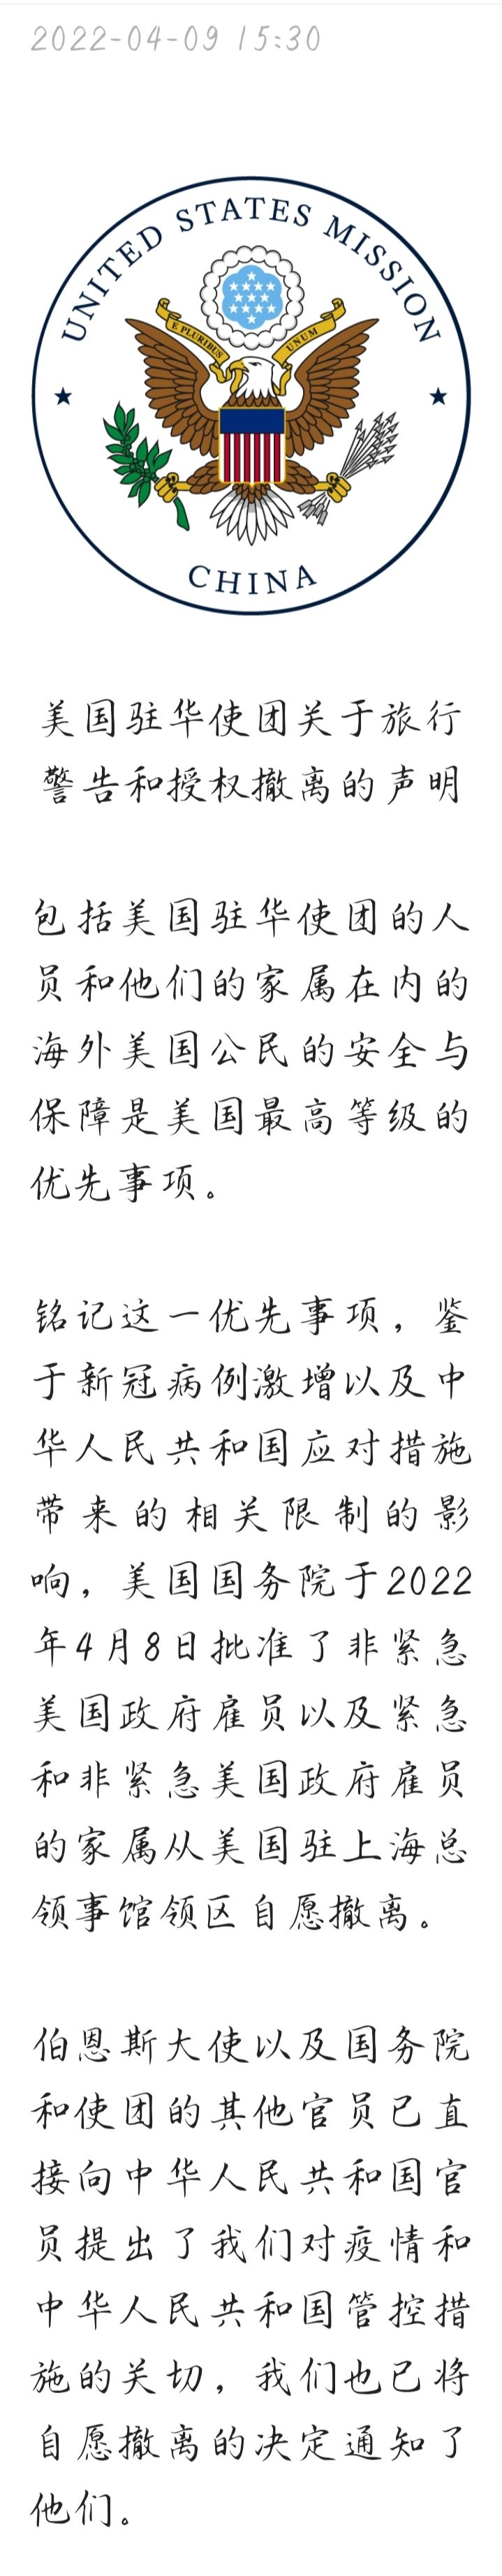 2022-04-09 15:30
UNITED STATES MISSION
E PLURIBUS UNUM
CHINA
美国驻华使团关于旅行
警告和授权撤离的声明
包括美国驻华使团的人
员和他们的家属在内的
海外美国公民的安全与
保障是美国最高等级的
优先事项。
铭记这一优先事项，鉴
于新冠病例激增以及中
华人民共和国应对措施
带来的相关限制的影
响，美国国务院于2022
年4月8日批准了非紧急
美国政府雇员以及紧急
和非紧急美国政府雇员
的家属从美国驻上海总
领事馆领区自愿撤离。
伯恩斯大使以及国务院
和使团的其他官员已直
接向中华人民共和国官
员提出了我们对疫情和
中华人民共和国管控措
施的关切，我们也已将
自愿撤离的决定通知了
他们。